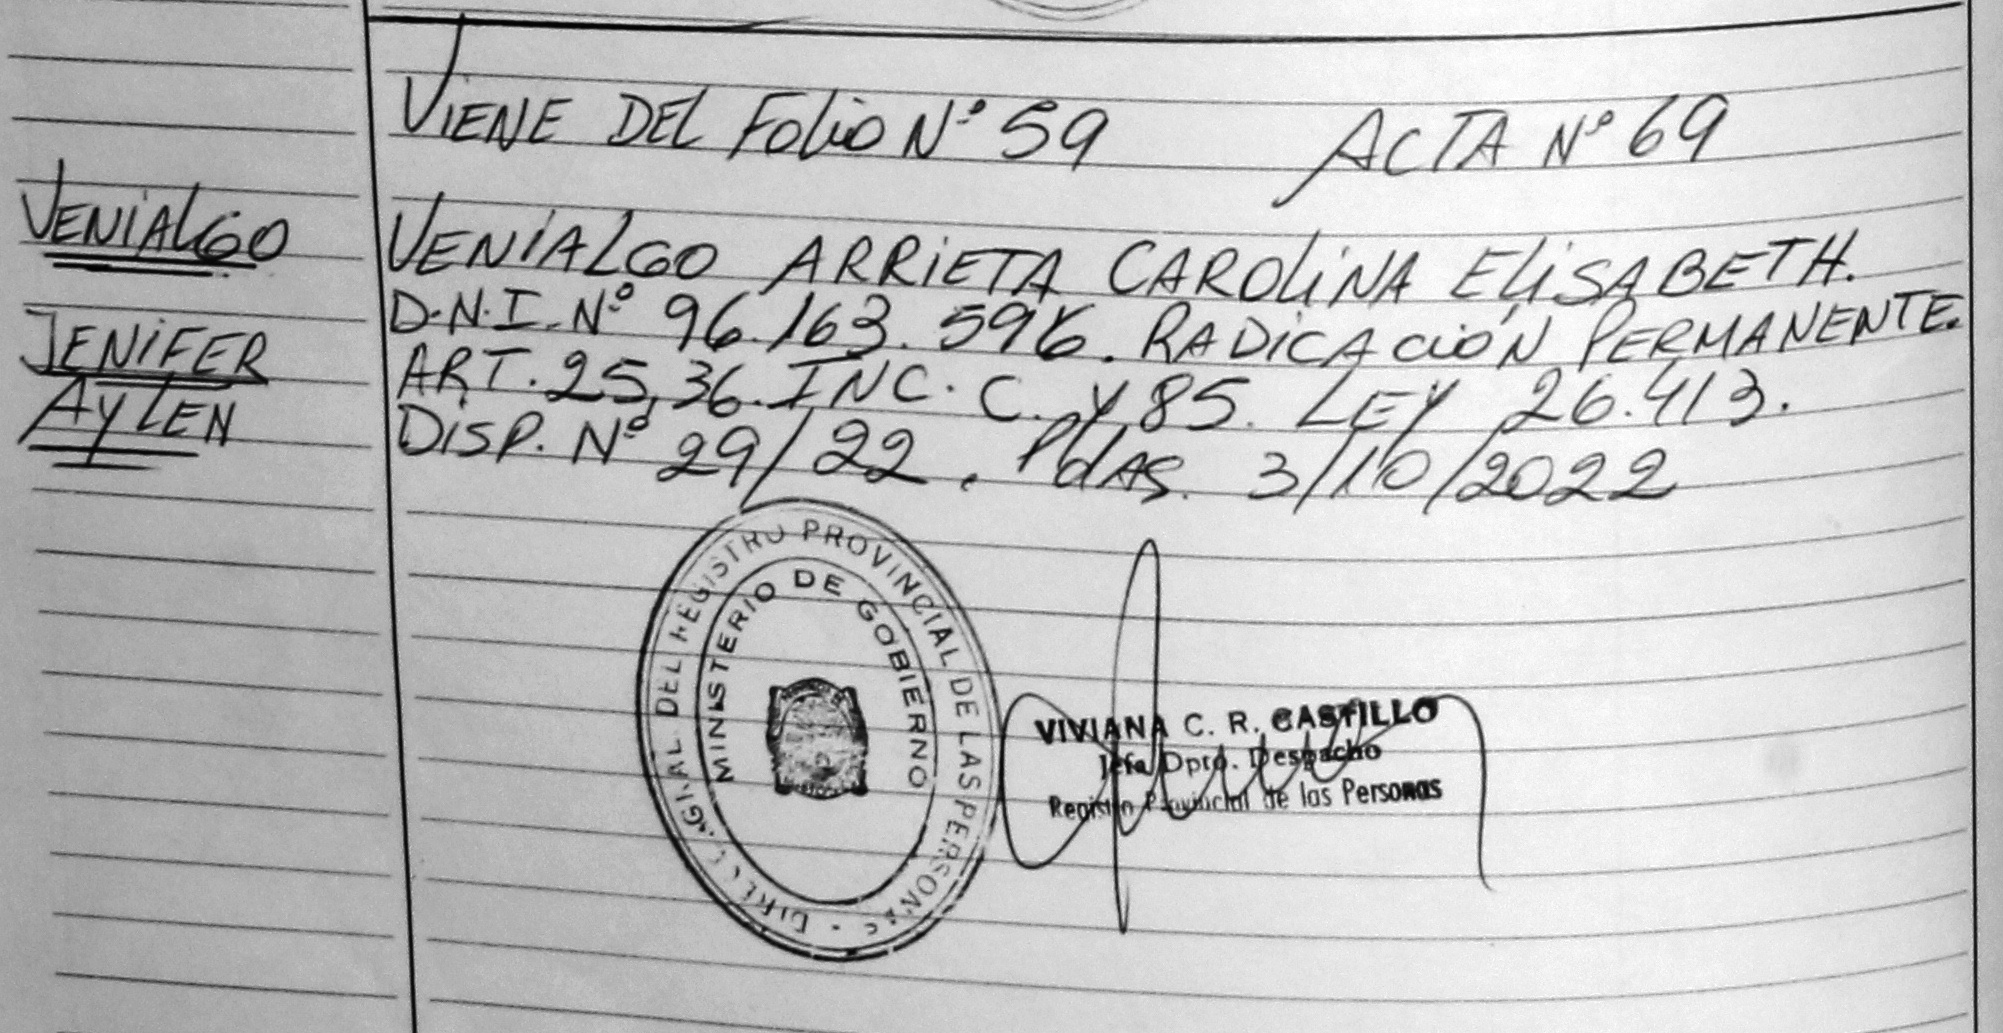 VIENE DEL FOLIO Nº 59 ACTA Nº 69
VENIALGO
JENIFER
AYLEN
VENIALGO ARRIETA CAROLINA ELISABETH.
D.N.I. Nº 96.163.596. RADICACIÓN PERMANENTE.
ART. 25, 36. INC. C. Y 85. LEY 26.413.
DISP. Nº 29/22. PdAS. 3/10/2022
DEL REGISTRO PROVINCIAL DE LAS PERSONAS
MINISTERIO DE GOBIERNO
VIVIANA C. R. CASTILLO
Jefa Dpto. Despacho
Registro Provincial de las Personas